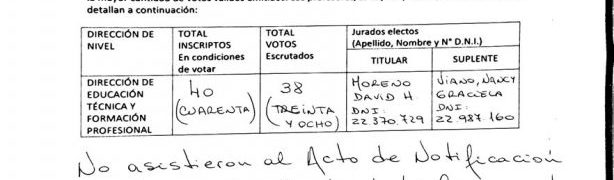 detallan a continuación:
DIRECCIÓN DE NIVEL
TOTAL INSCRIPTOS En condiciones de votar
TOTAL VOTOS Escrutados
Jurados electos (Apellido, Nombre y N° D.N.I.)
TITULAR
SUPLENTE
DIRECCIÓN DE EDUCACIÓN TÉCNICA Y FORMACIÓN PROFESIONAL
40 (CUARENTA)
38 (TREINTA Y OCHO)
MORENO DAVID H DNI: 22.370.729
VIANO, NANCY GRACIELA DNI: 22.987.160
No asistieron al Acto de Notificación